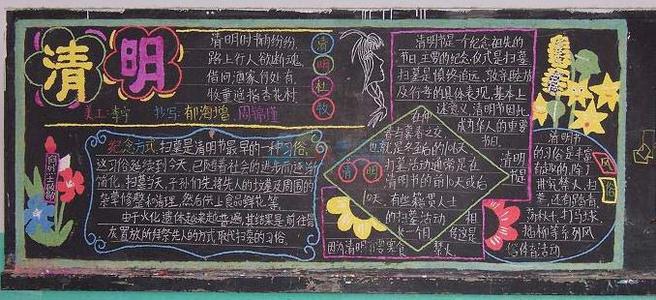 清明
清明时雨纷纷,
路上行人欲断魂。
借问酒家何处有,
牧童遥指杏花村。
清
明
杜
牧
美工:李宁 抄写:郁海增 周锦瑾
纪念方式 扫墓是清明节最早的一种习俗,
这习俗延续到今天,已随着社会的进步而逐渐
简化,扫墓当天,子孙们先将先人的坟墓及周围的
杂草修整和清理,然后供上食品鲜花等
由于火化遗体越来越普遍,其结果是前往骨
灰置放所拜祭先人的方式取代扫墓的习俗
清明节是一个纪念祖先的
节日,主要的纪念仪式是扫墓
扫墓是慎终追远、敦亲睦族
及行孝的具体表现,基本上
述意义 清明节因此
成为华人的重要
节日。
清明
在仲
春与暮春之交
也就是冬至后的
扫墓活动通常是在
清明节的前10天或后
10天,有些籍贯人士
的扫墓活动
一个月
清明
因为清明节要寒食禁火
清明节
的习俗是丰富
有趣的,除了
讲究禁火、扫
墓,还有踏青、
荡秋千、打马球、
插柳等系列风
俗体育活动
风
俗